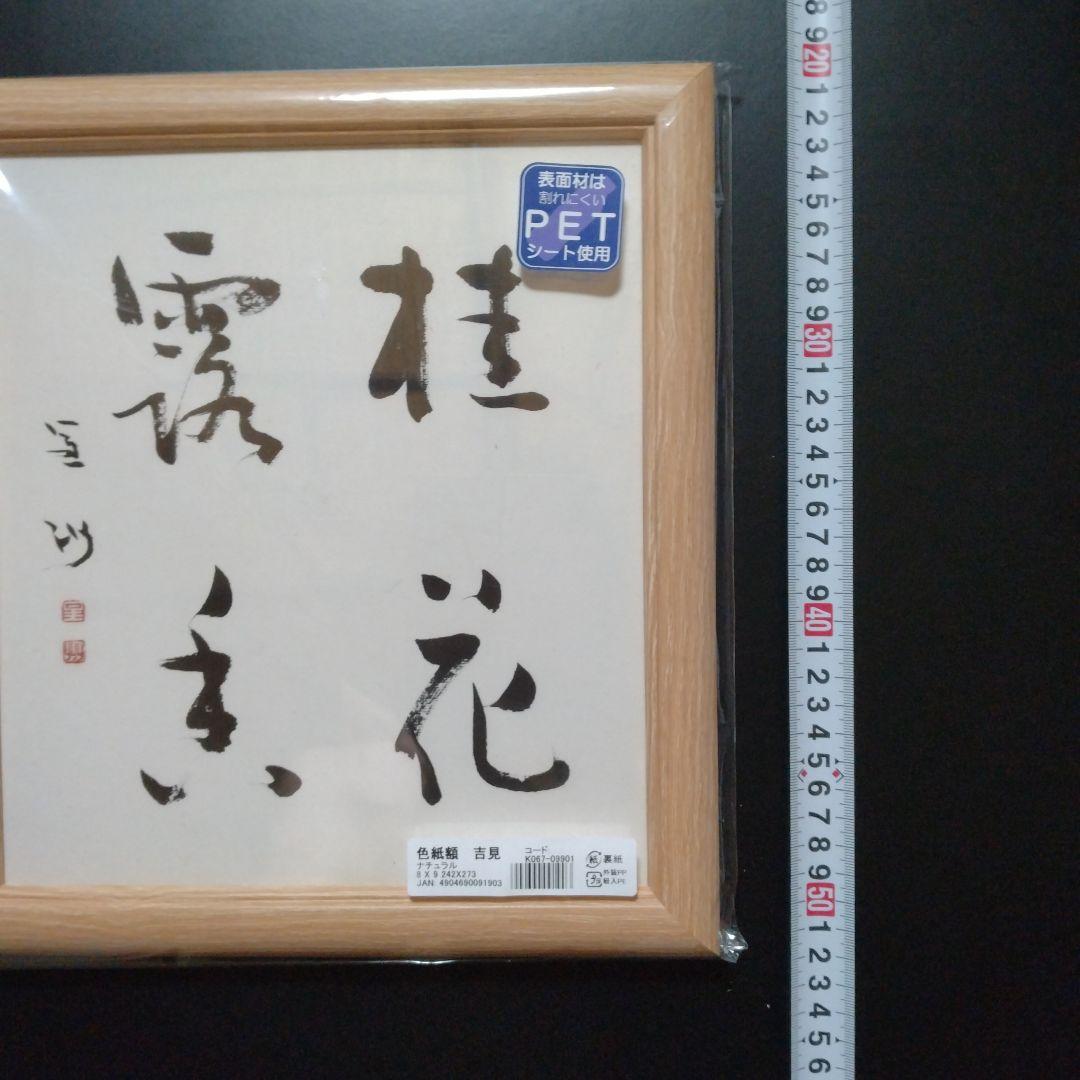 桂花
露香
表面材は
割れにくい
PET
シート使用
色紙額 吉見
ナチュラル
8 X 9 242X273
JAN: 4904690091903
コード:
K067-09901
紙 裏紙
プラ 外装PP
箱入PE
8
9
20
1
2
3
4
5
6
7
8
9
30
1
2
3
4
5
6
7
8
9
40
1
2
3
4
5
6
7
8
9
50
1
2
3
4
5
6